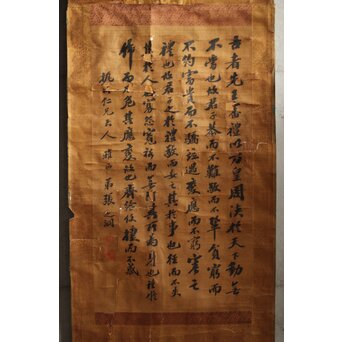 昔者先王審禮以方皇周浹於天下動無
不當也故君子恭而不難敬而不鞏貧窮而
不約富貴而不驕並遇變應而不窮審之
禮也故君子之於禮敬而安之其於事也徑而不失
其於人也寡怨寬裕而無阿其所為身也謹修
飾而不危其應變故也齊給便捷而不惑
仁兄大人 雅正 弟張之洞